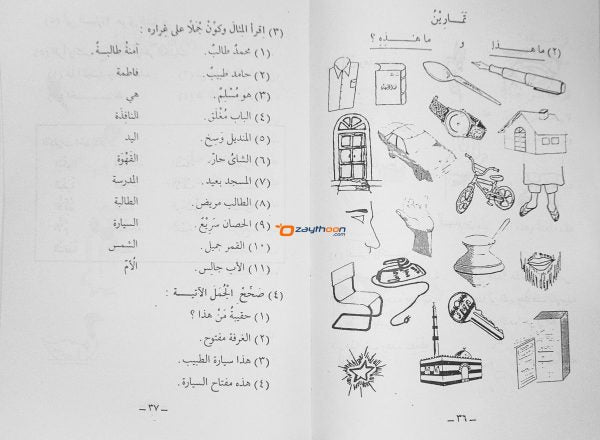 تَمَارِيْنُ
(٢) ما هٰذا و ما هٰذِهِ ؟
ـ ٣٦ ـ
(٣) اقرأ المثال وكَوِّنْ جُمَلاً على غراره :
(١) محمدٌ طالبٌ. آمنةُ طالبةٌ.
(٢) حامد طبيبٌ. فاطمة
(٣) هو مُسْلِمٌ. هي
(٤) الباب مُغْلَق. النافذة
(٥) المنديل وَسِخ. اليد
(٦) الشايُ حارٌّ. القَهْوَة
(٧) المسجد بعيد. المدرسة
(٨) الطالب مريض. الطالبة
(٩) الحصان سَرِيْعٌ. السيارة
(١٠) القمر جميل. الشمس
(١١) الأب جالِس. الأُمّ
(٤) صَحِّحْ الجُمَلَ الآتيـة :
(١) حقيبةُ مَنْ هذا ؟
(٢) الغرفة مفتوح.
(٣) هذا سيارة الطبيب.
(٤) هذه مفتاح السيارة.
ـ ٣٧ ـ
Ozaythoon
.com